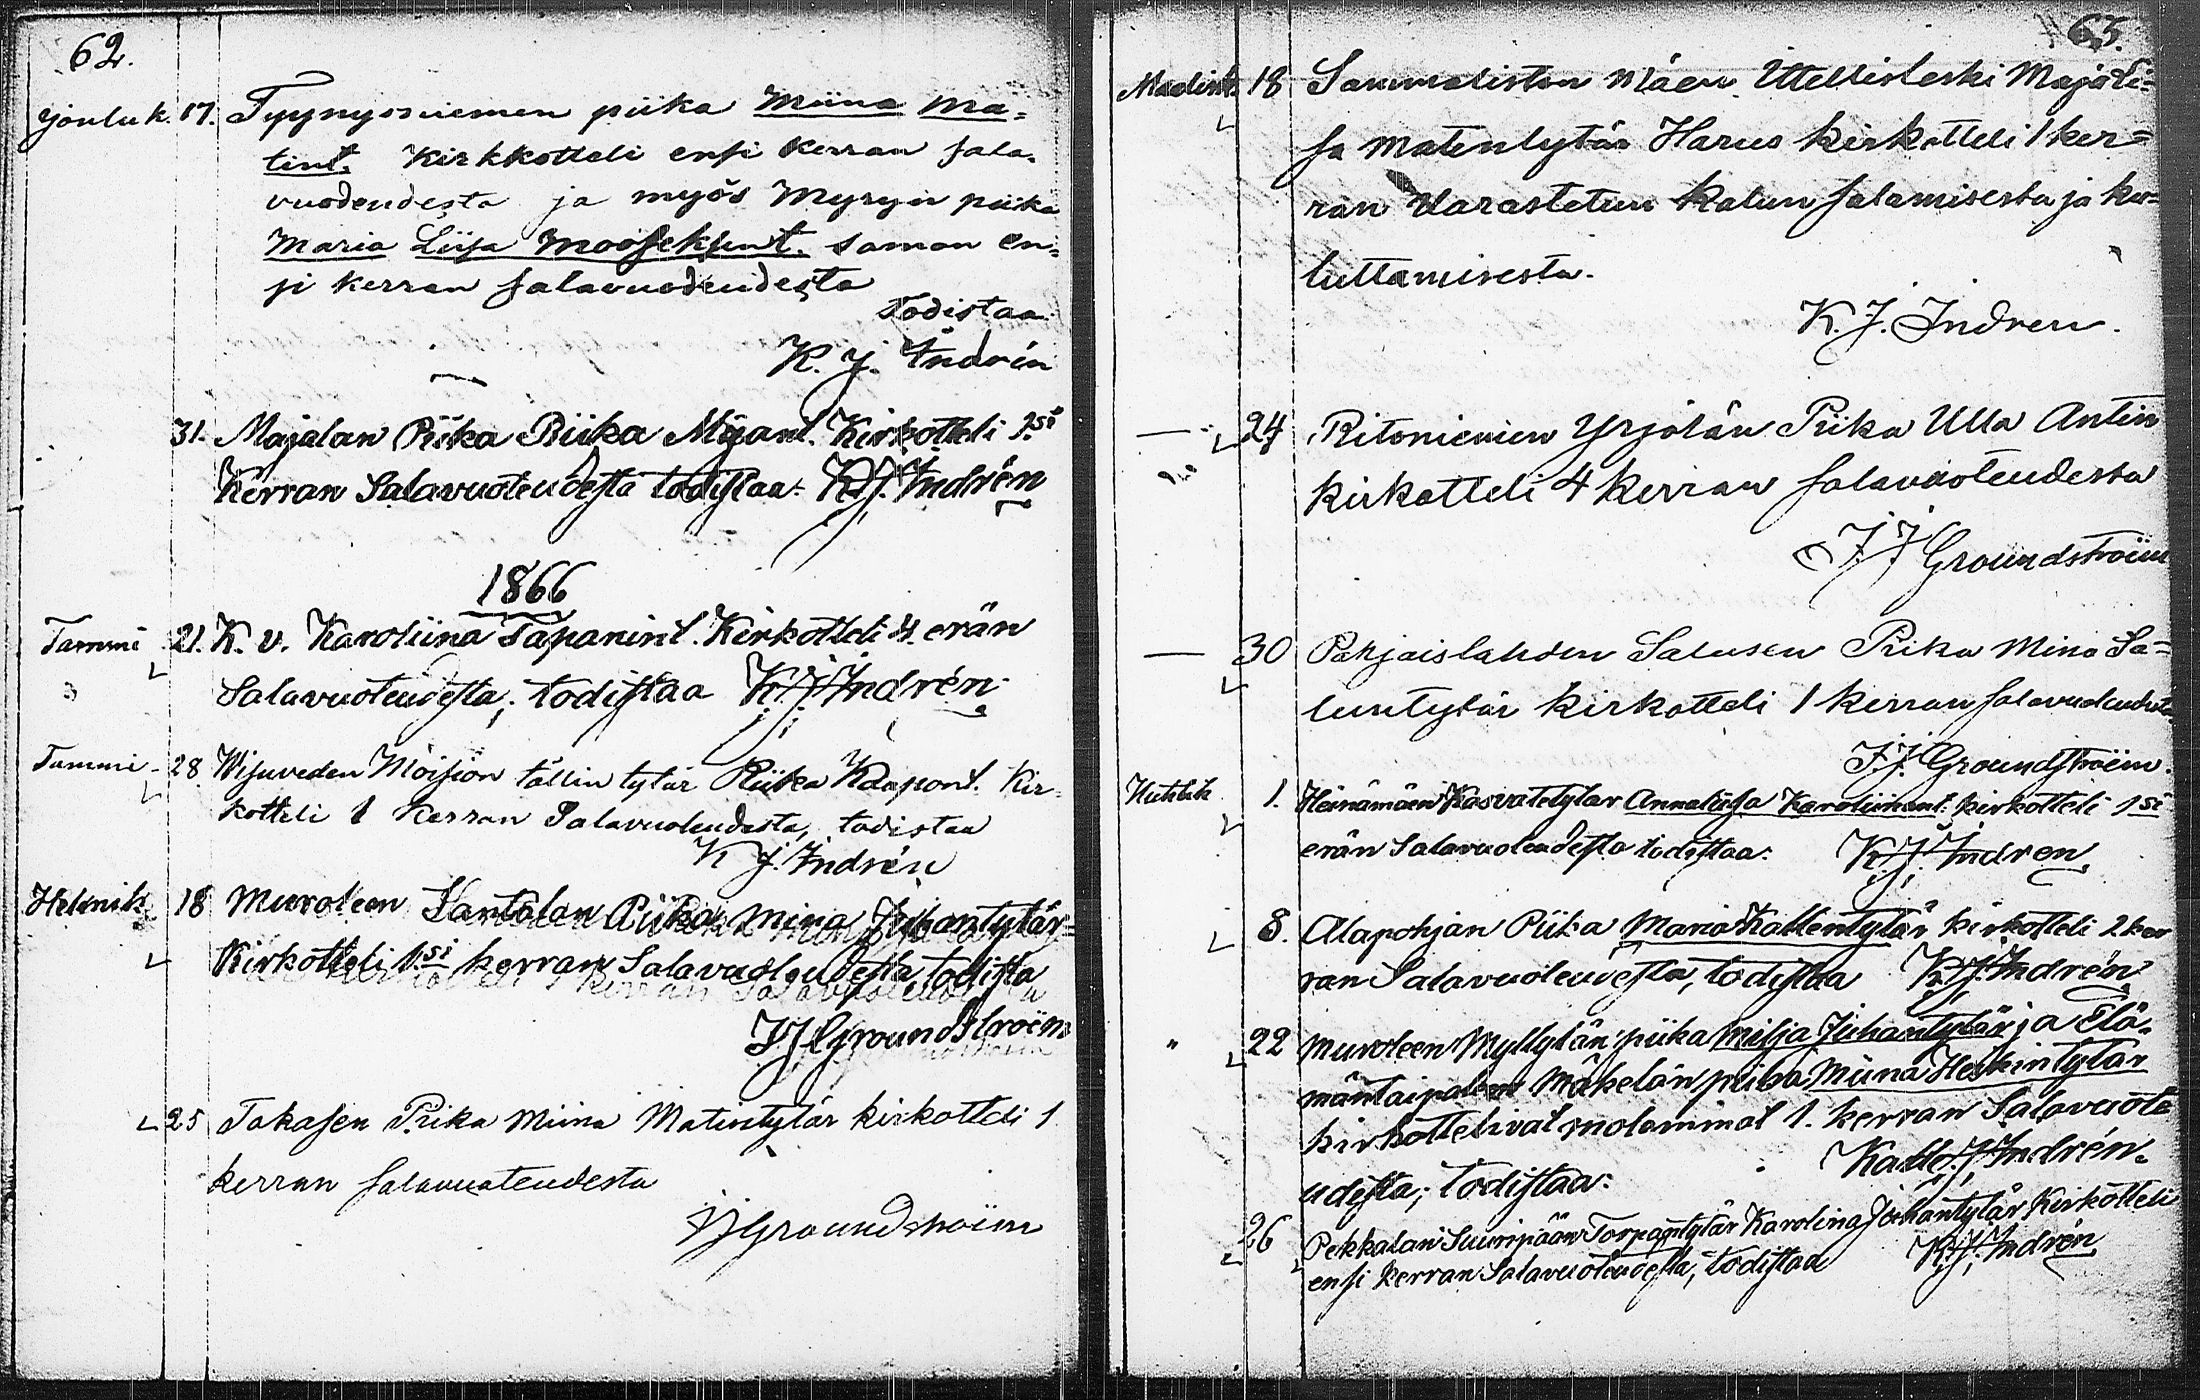 62.
Jouluk. 17. Tyynysniemen piika Miina Ma=
tint. Kirkkotteli ensi kerran sala=
vuodeudesta ja myös Myryn piika
Maria Liisa Mooseksent. saman en=
si kerran salavuodeudesta
Todistaa
K. J. Indrén
31. Majalan Piika Riika Mijant. Kirkotteli 1.si
Kerran Salavuoteudesta todistaa: K.J. Indrén
1866
Tammi 21. K. v. Karoliina Tapanint. Kirkotteli 4. erän
Salavuoteudesta; todistaa K. J. Indrén
Tammi - 28. Wisuveden Möisiön tällin tytär Riika Kaapont. Kir=
kotteli 1 Kerran Salavuoteudesta, todistaa
K J. Indrén
Helmik 18 Muroleen Santalan Piika Mina Juhantytär=
Kirkotteli 1.si kerran Salavuoteudesta todista
JJ Groundstroëm
25 Takasen Piika Miina Matintytär kirkotteli 1
kerran salavuoteudesta
JJ Groundstroëm
63.
Maalisk. 18 Sammaliston Mäen Itellisleski Maja Li=
sa Matentytär Harus kirkotteli 1 ker=
ran Varastetun Kalun salamisesta ja ku=
luttamisesta.
K. J. Indren.
— 24 Ritoniemen Yrjölän Piika Ulla Antin
kirkotteli 4 Kerran salavuoteudesta
J J Groundstroëm
— 30 Pohjaislahden Salusen Piika Mina Sa=
luntytär kirkotteli 1 kerran salavuoteudesta
J. J. Groundstroëm.
Huhtik 1. Heinämäen Kasvatetytar Annaliisa Karoliinant. kirkotteli 1si
erän Salavuoteudesta todistaa: K. J. Indren
8. Alapohjan Piika Maria Kallentytär kirkotteli 2 ker
ran Salavuoteudesta, todistaa K. J. Indrén
" 22 Muroleen Myllylän piika Milja Juhantytär ja Elä=
mäntaipaleen Mäkelän piika Miina Heskintytär
kirkottelivat molammat 1. kerran Salavuote
udesta; todistaa: Kalle J. Indrén.
26 Pekkalan Suuripään Torpantytär Karolina Johantytär Kirkotteli
ensi kerran Salavuoteudesta; todistaa K. J. Indrén